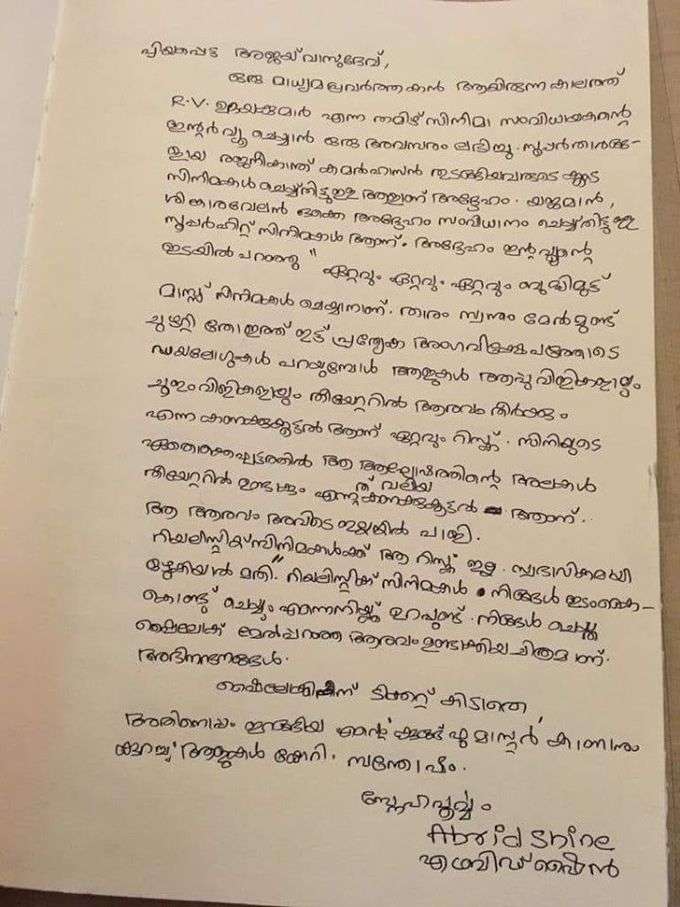 പ്രിയപ്പെട്ട അജയ് വാസുദേവ്,
ഒരു മാധ്യമപ്രവർത്തകൻ ആയിരുന്ന കാലത്ത്
R.V. ഉദയകുമാർ എന്ന തമിഴ് സിനിമാ സംവിധായകന്റെ
ഇന്റർവ്യൂ ചെയ്യാൻ ഒരു അവസരം ലഭിച്ചു. സൂപ്പർതാരങ്ങ-
ളായ രജനീകാന്ത് കമൽഹാസൻ തുടങ്ങിയവരുടെ കൂടെ
സിനിമകൾ ചെയ്തിട്ടുള്ള ആളാണ് അദ്ദേഹം. യജമാൻ,
ശിങ്കാരവേലൻ ഒക്കെ അദ്ദേഹം സംവിധാനം ചെയ്തിട്ടുള്ള
സൂപ്പർഹിറ്റ് സിനിമകൾ ആണ്. അദ്ദേഹം ഇന്റർവ്യൂന്റെ
ഇടയിൽ പറഞ്ഞു "ഏറ്റവും ഏറ്റവും ഏറ്റവും ബുദ്ധിമുട്ട്
മാസ്സ് സിനിമകൾ ചെയ്യാനാണ്. താരം സ്വന്തം മേൽമുണ്ട്
ചുഴറ്റി തോളത്ത് ഇട്ട് പ്രത്യേക അംഗവിക്ഷേപത്തോടെ
ഡയലോഗുകൾ പറയുമ്പോൾ ആളുകൾ ആർപ്പുവിളികളും
ചൂളംവിളികളുമായും തീയേറ്ററിൽ ആരവം തീർക്കും
എന്ന കണക്കുകൂട്ടൽ ആണ് ഏറ്റവും റിസ്ക്ക്. സിനിമയുടെ
ഏതൊക്കെഘട്ടത്തിൽ ആ ആഘോഷത്തിന്റെ അലകൾ
തീയേറ്ററിൽ ഉണ്ടാക്കും എന്നത് വലിയ കണക്കുകൂട്ടൽ ആണ്.
ആ ആരവം അവിടെ ഇല്ലെങ്കിൽ പാളി.
റിയലിസ്റ്റിക് സിനിമകൾക്ക് ആ റിസ്ക്ക് ഇല്ല. സ്വഭാവികമായി
ഒഴുകിയാൽ മതി". റിയലിസ്റ്റിക് സിനിമകൾ നിങ്ങൾ ഇടംകൈ-
കൊണ്ട് ചെയ്യും എന്നെനിയ്ക്ക് ഉറപ്പുണ്ട്. നിങ്ങൾ ചെയ്ത
ഷൈലോക്ക് മേൽപ്പറഞ്ഞ ആരവം ഉണ്ടാക്കിയ ചിത്രമാണ്.
അഭിനന്ദനങ്ങൾ.
ഷൈലോക്കിന് ടിക്കറ്റ് കിട്ടാതെ
അതിനൊപ്പം ഇറങ്ങിയ എന്റെ 'കുങ്ങ്ഫു മാസ്റ്റർ' കാണാനും
കുറച്ച് ആളുകൾ കേറി. സന്തോഷം.
സ്നേഹപൂർവ്വം
Abrid Shine
എബ്രിഡ് ഷൈൻ